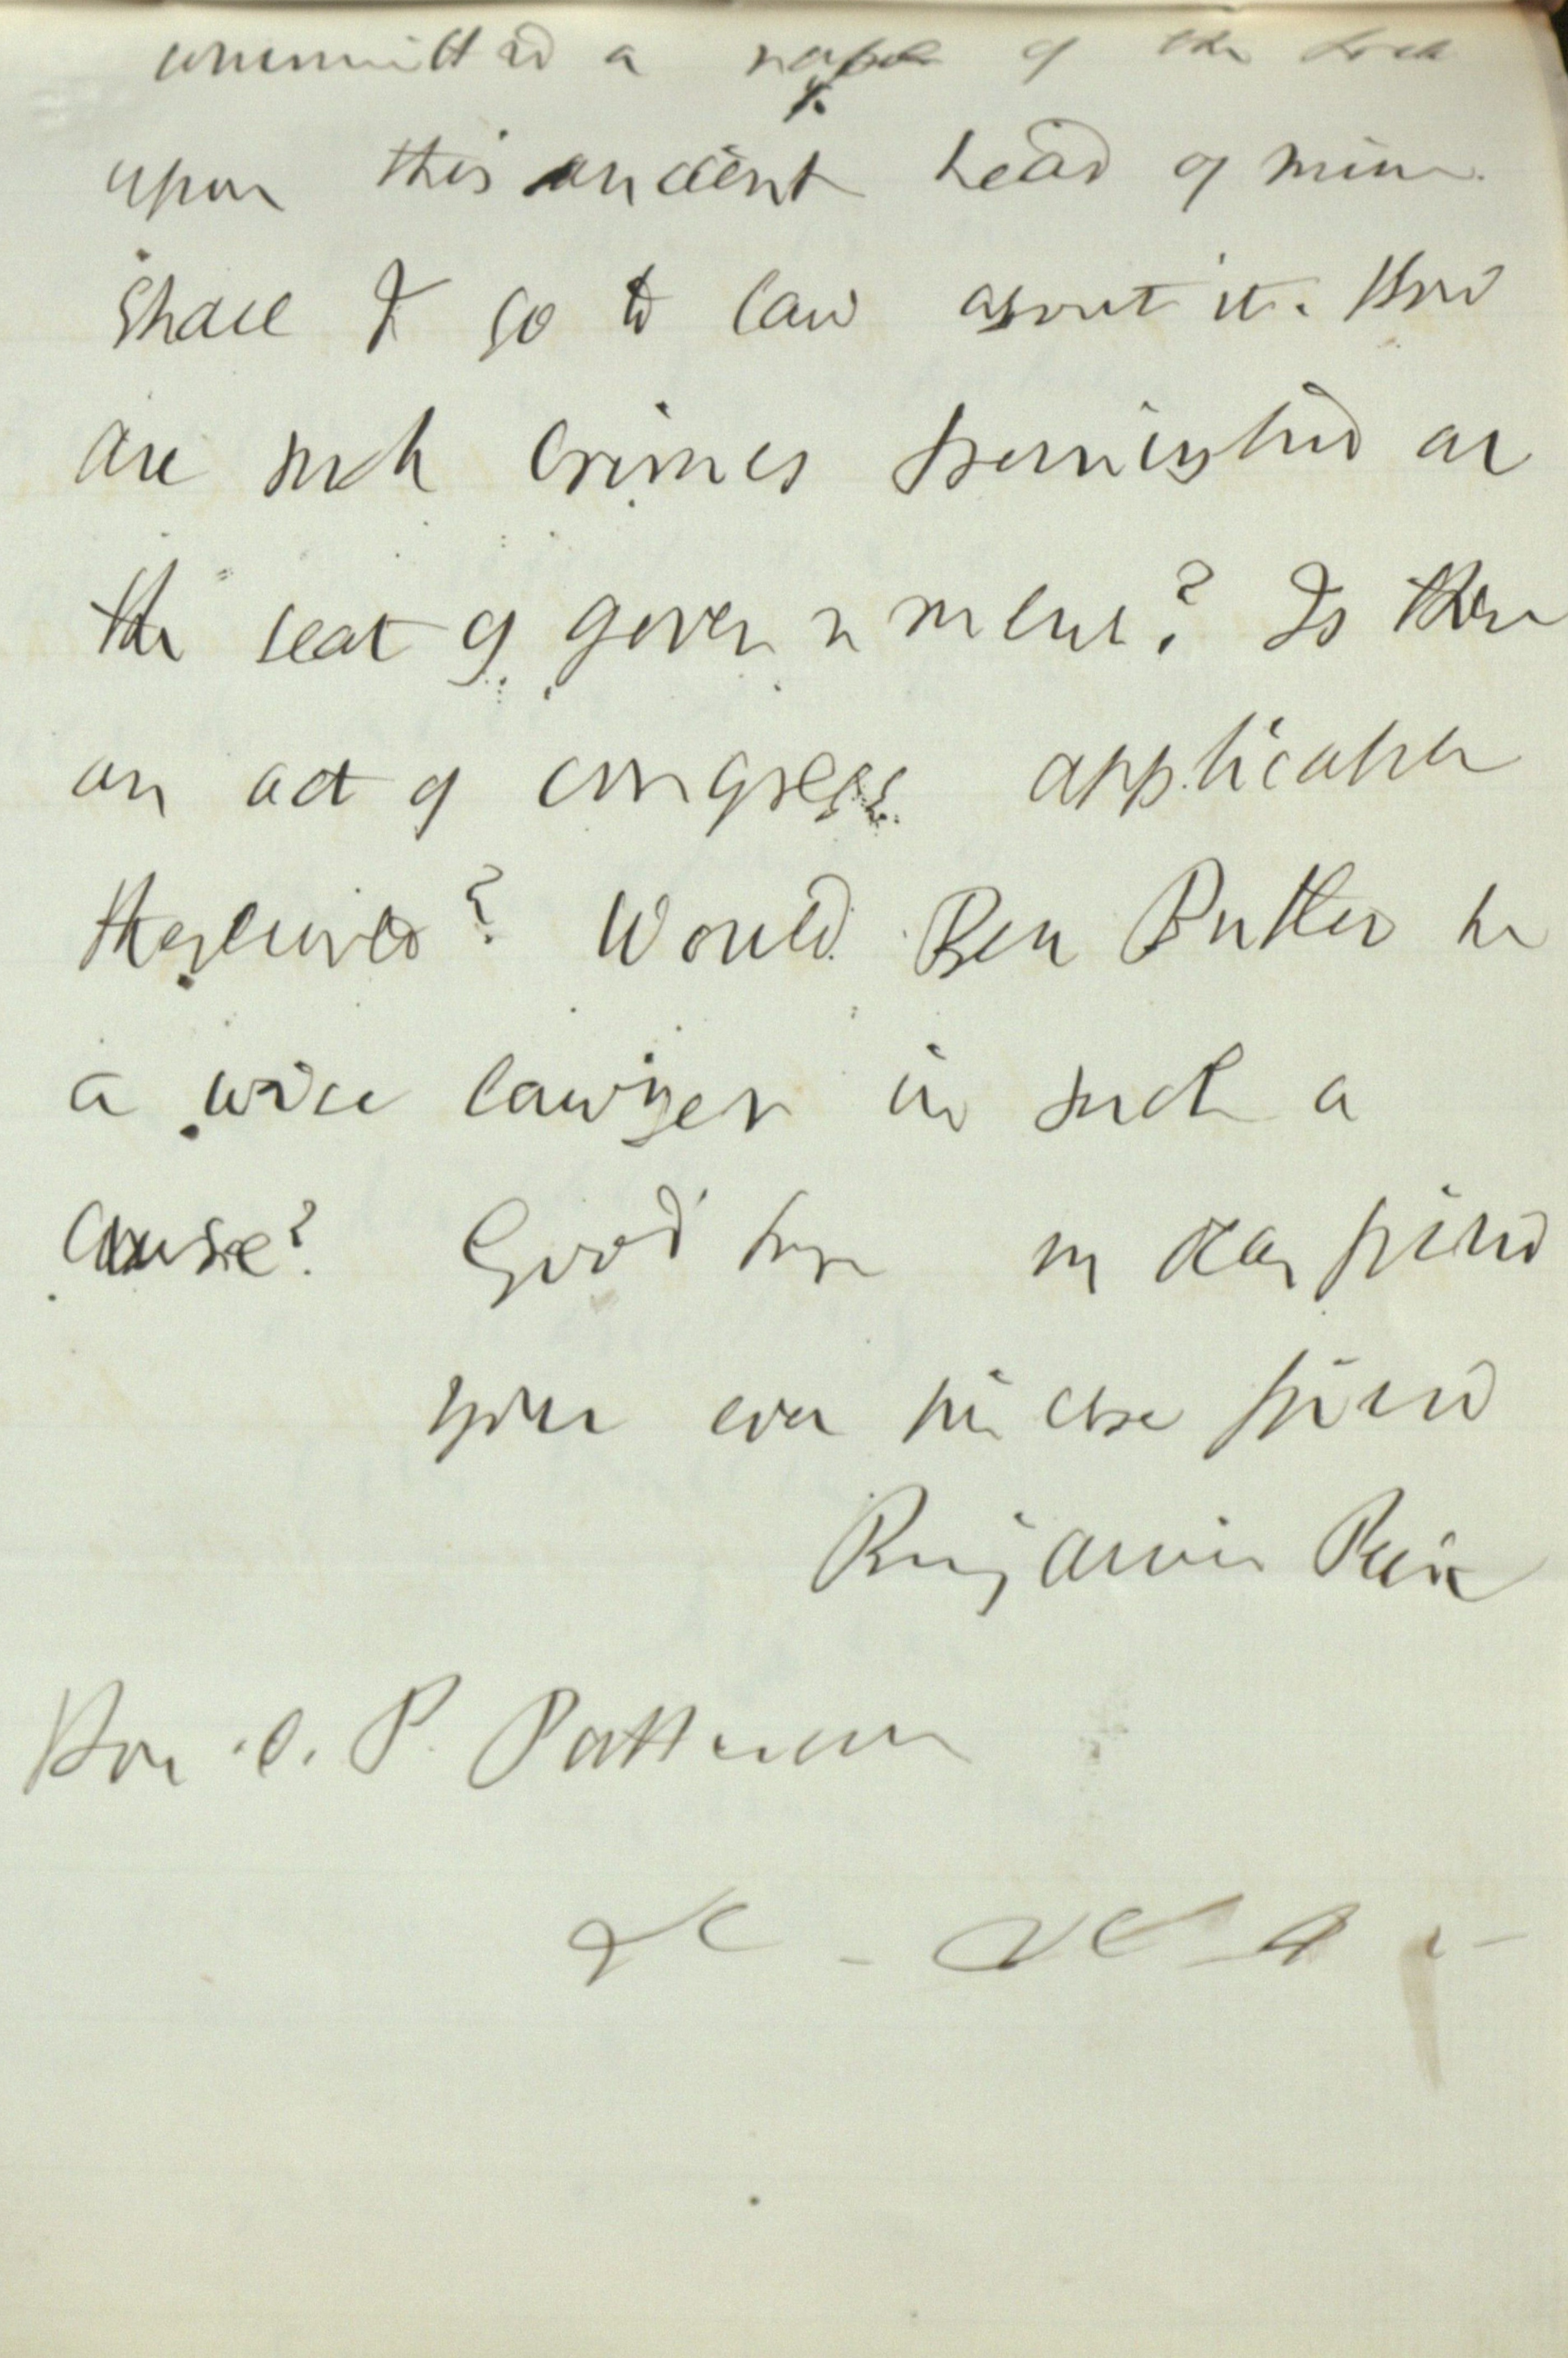 committed a rape of the lock
upon this ancient head of mine.
Shall I go to law about it. How
are such crimes punished at
the seat of government? Is there
an act of congress applicable
thereunto? Would Ben Butler be
a wise lawyer in such a
cause? Good bye my dear friend
your ever sincere friend
Benjamin Peirce
Hon. C. P. Patterson
&c - &c &c -